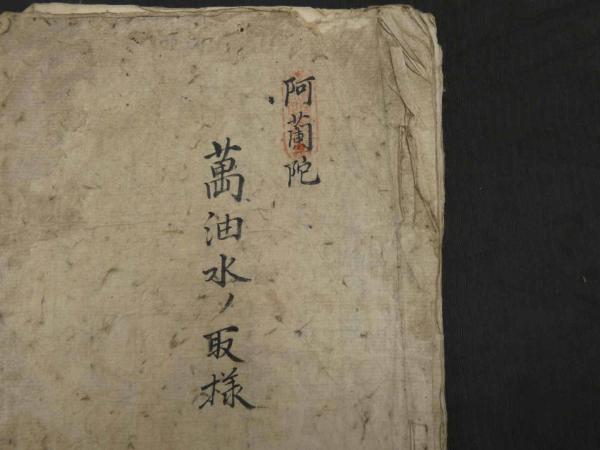 阿蘭陀
萬油水ノ取様